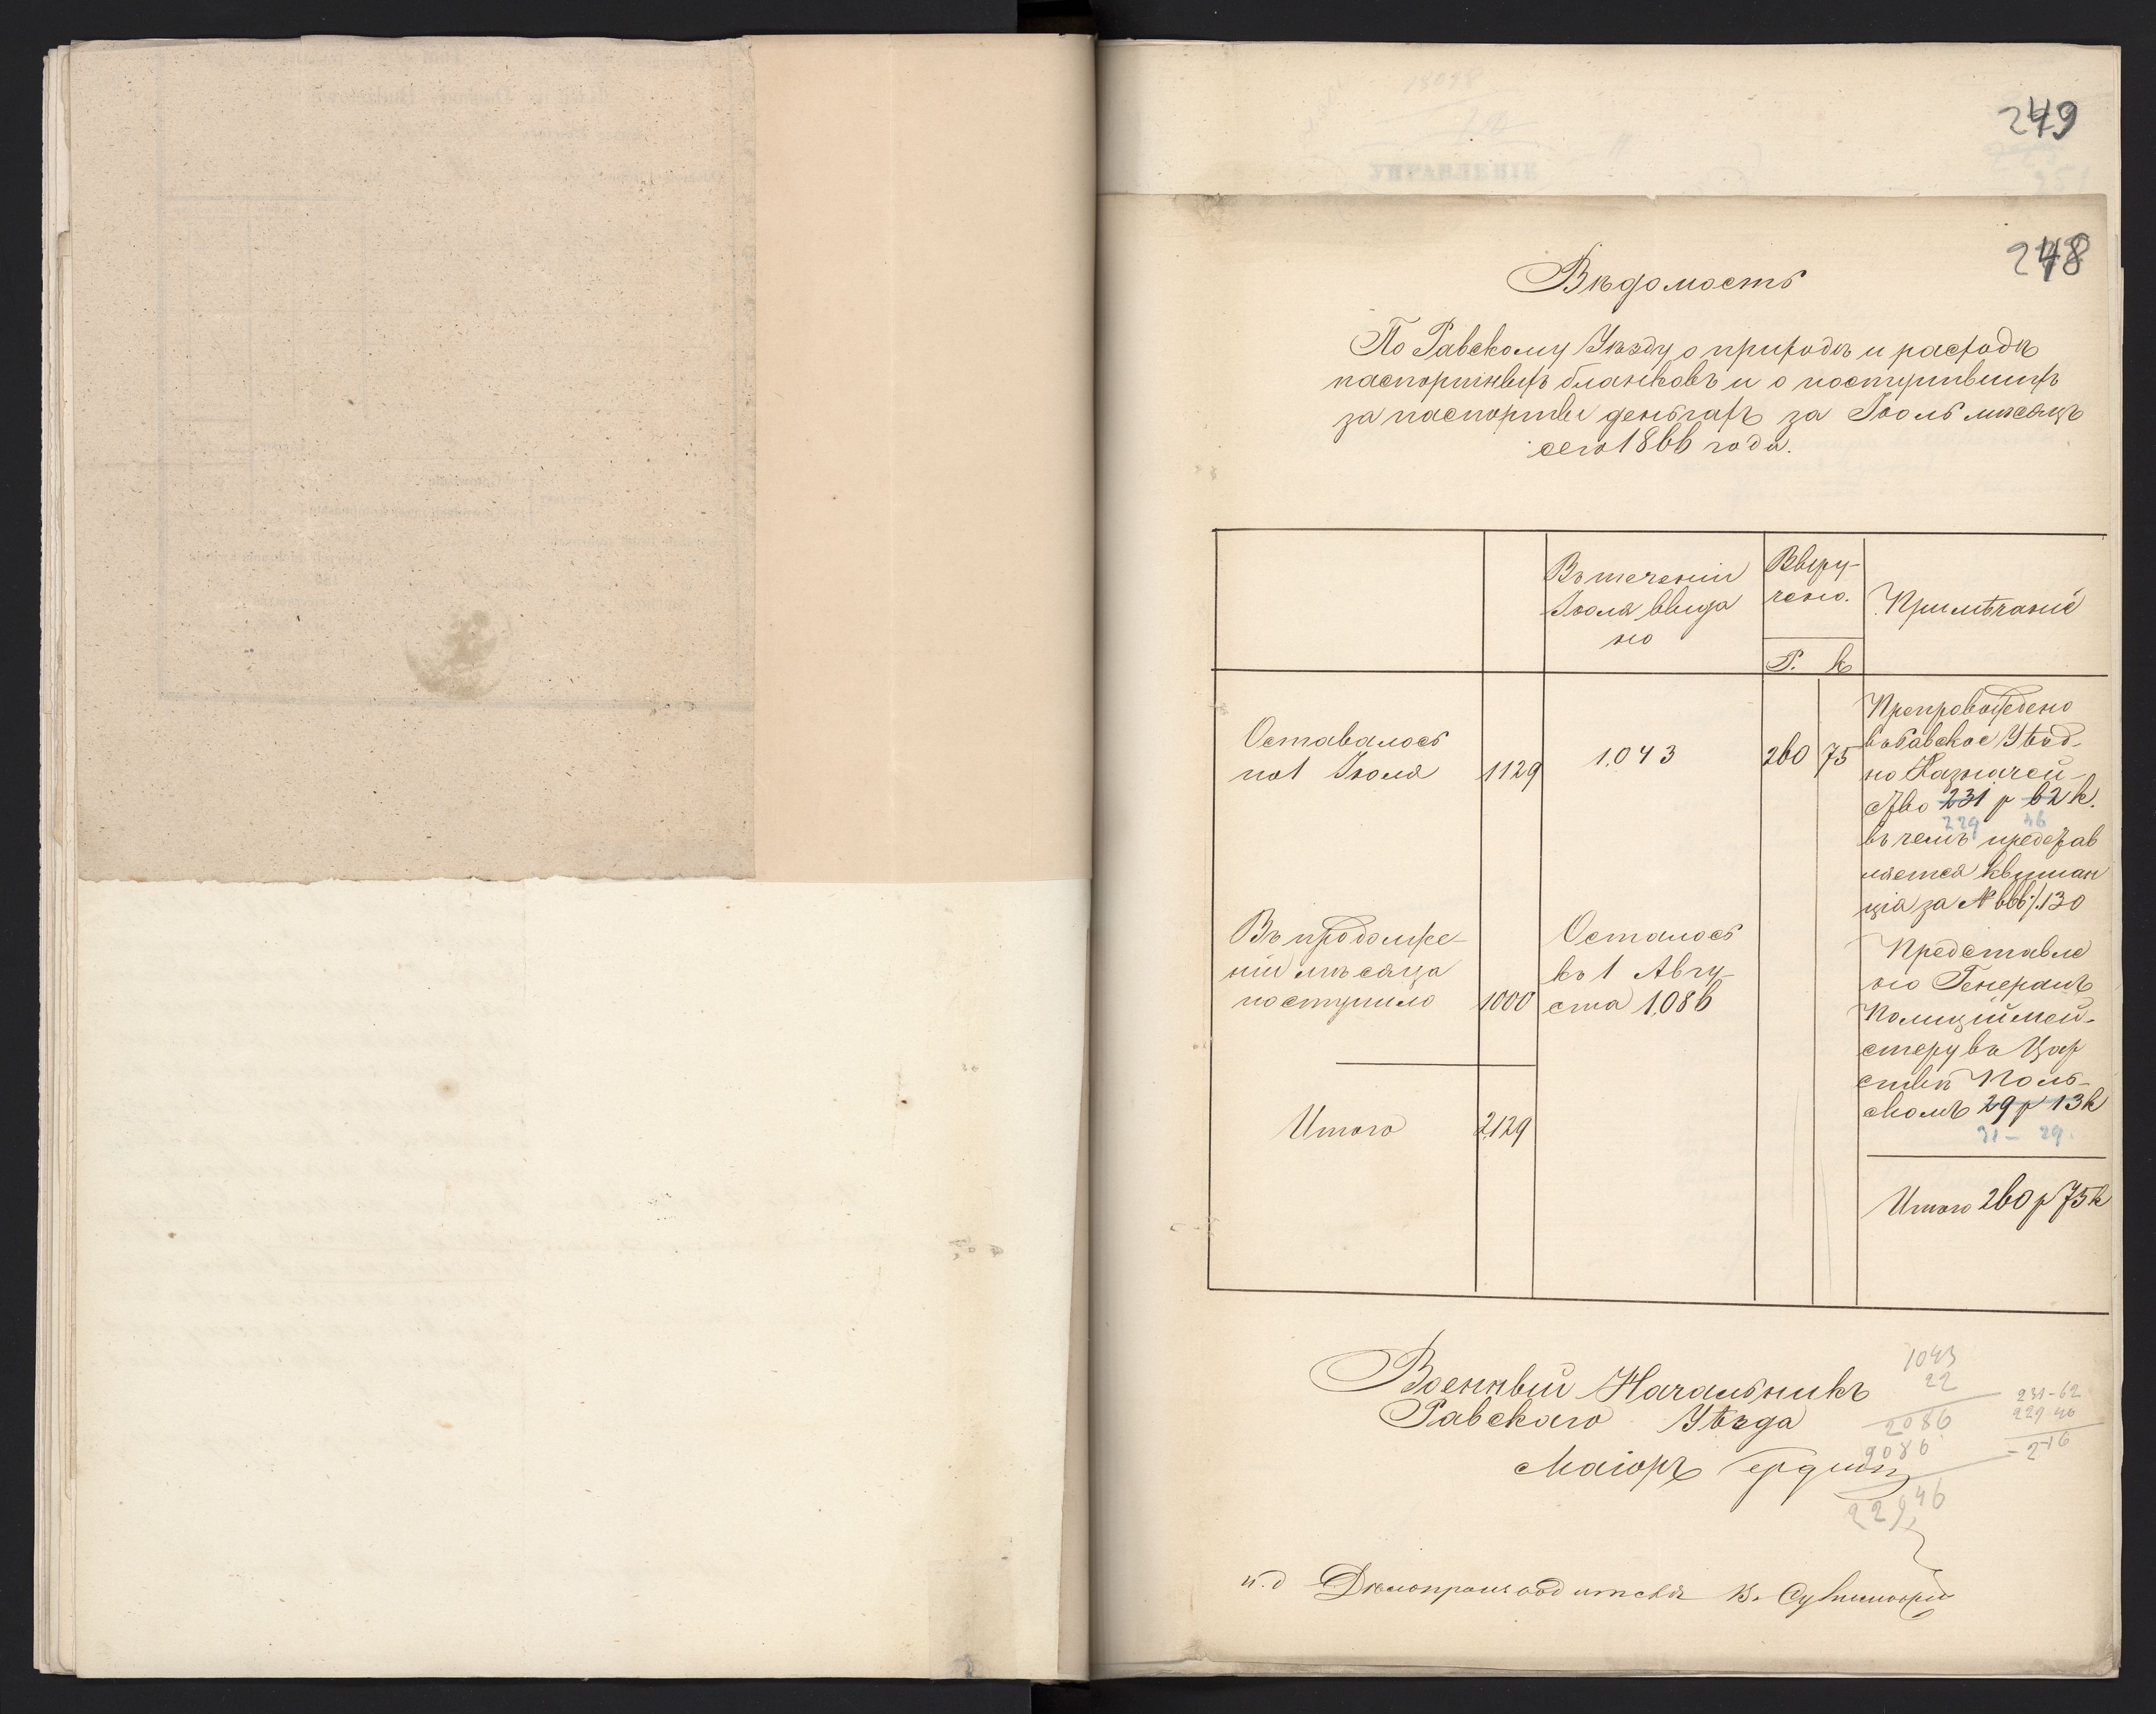 249
УПРАВЛЕНІЕ
248
Вѣдомость
По Равскому Уѣзду о приходѣ и расходѣ
паспортныхъ бланковъ и о поступившихъ
за паспорты деньгахъ за Іюль мѣсяцъ
сего 1866 года.
Въ теченіи
Іюля выда
но
Выру-
чено.
Р. к
Примѣчаніе
Оставалось
по 1 Іюля 1129
1,043
260 75
Препровождено
въ Равское Уѣзд-
но Казначей-
ство 231 р 62 к.
229 46
въ чемъ представ
ляется квитан
ція за № 666/130
Въ продолже-
ніи мѣсяца
поступило 1000
Осталось
къ 1 Авгу-
ста 1,086
Представле
но Генералъ
Полиціймей-
стеру въ Цар
ствѣ Поль-
скомъ 29 р 13 к
31 - 29.
Итого 2,129
Итого 260 р 75 к
Военный Начальникъ
Равскаго Уѣзда
Маіоръ
1043
22
2086
2086
229,46
231-62
229-46
-2-16
и. д Дѣлопроизводителя В.